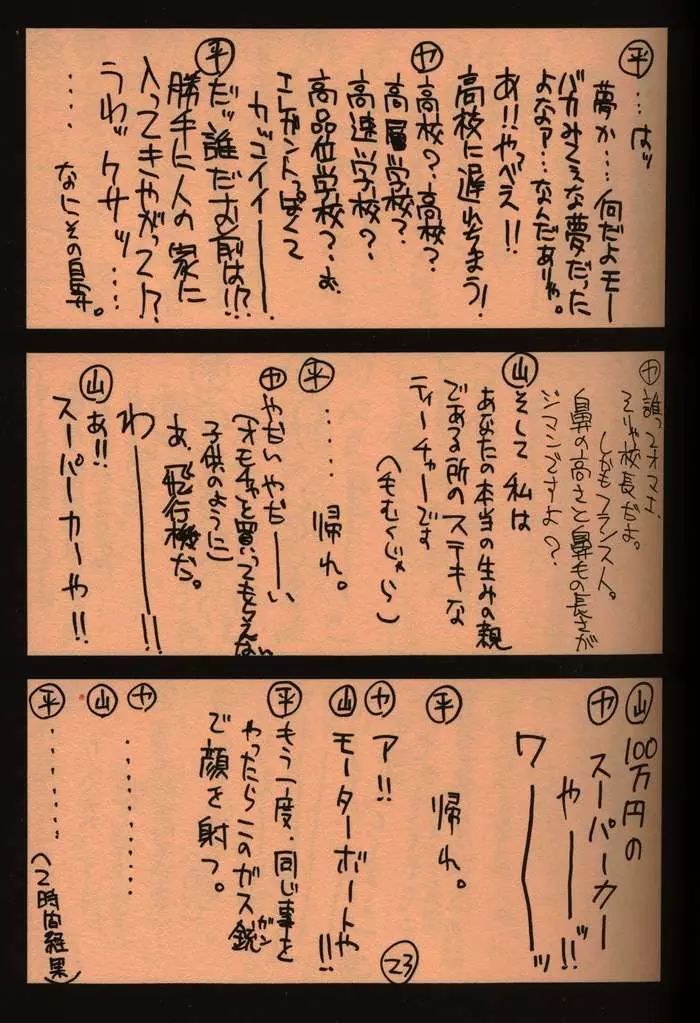 ㊤平 …はッ
夢か…何だよモー
バカみてぇな夢だった
よなァ…なんだありゃ。
あ!!やっべえ!!
高校に遅れちまう!
ヤ 高校?高校?
高層学校?
高速学校?
高品位学校?お、
エレガントっぽくて
カッコイイー
平 だッ誰だお前は!?
勝手に人の家に
入ってきやがって!?
うわッケサッ…
….なにその鼻。
ヤ 誰ってオマエ、
そりゃ校長だよ。
しかもフランス人。
鼻の高さと鼻毛の長さが
ジマンですよ?
山 そして私は
あなたの本当の生みの親
である所のステキな
ティーチャーです
(毛むくじゃら)
平 …..帰れ。
ヤ やだいやだーい
(オモチャを買ってもらえない
子供のように)
あ、飛行機だ。
わー!!
山 あ!!
スーパーカーや!!
山 100万円の
ヤ スーパーカー
やーッ!!
ワーッ
平 帰れ。
ヤ ア!!
山 モーターボートや!!
平 もう一度、同じ事を
やったらこのガス銃
ガン
で顔を射つ。
ヤ ………
山
平 ………
(2時間経過)
23